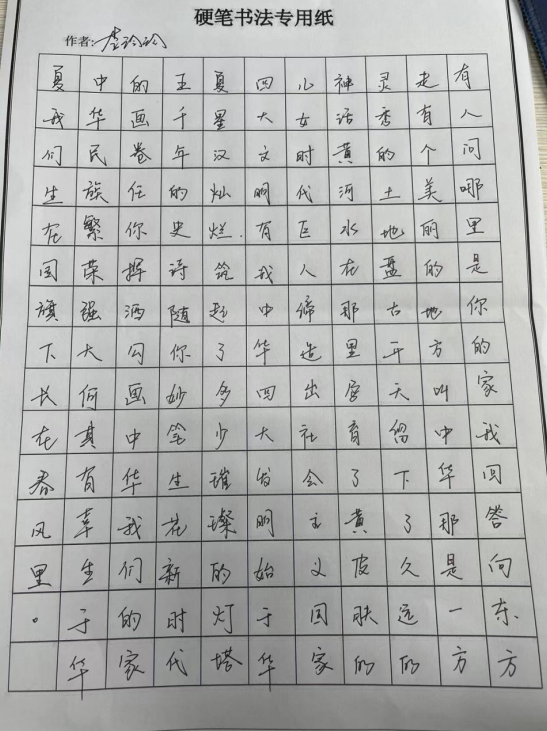 硬笔书法专用纸
作者:李玲玲
有人问哪里是你的家我回答向东方
走有个美丽的地方叫中华那是一方
灵秀的土地盘古开天留下了久远的
神话黄河水在那里育了黄皮肤的
儿女时代巨人缔造出社会主义国家
四大文明有我中华四大发明始于华
夏星汉灿烂.筑起了多少璀璨的灯塔
王千年的史诗随你妙笔生花新时代
的画卷任你挥洒勾画中华我们的家
中华民族繁荣强大何其有幸生于华
夏我们生在国旗下长在春风里。